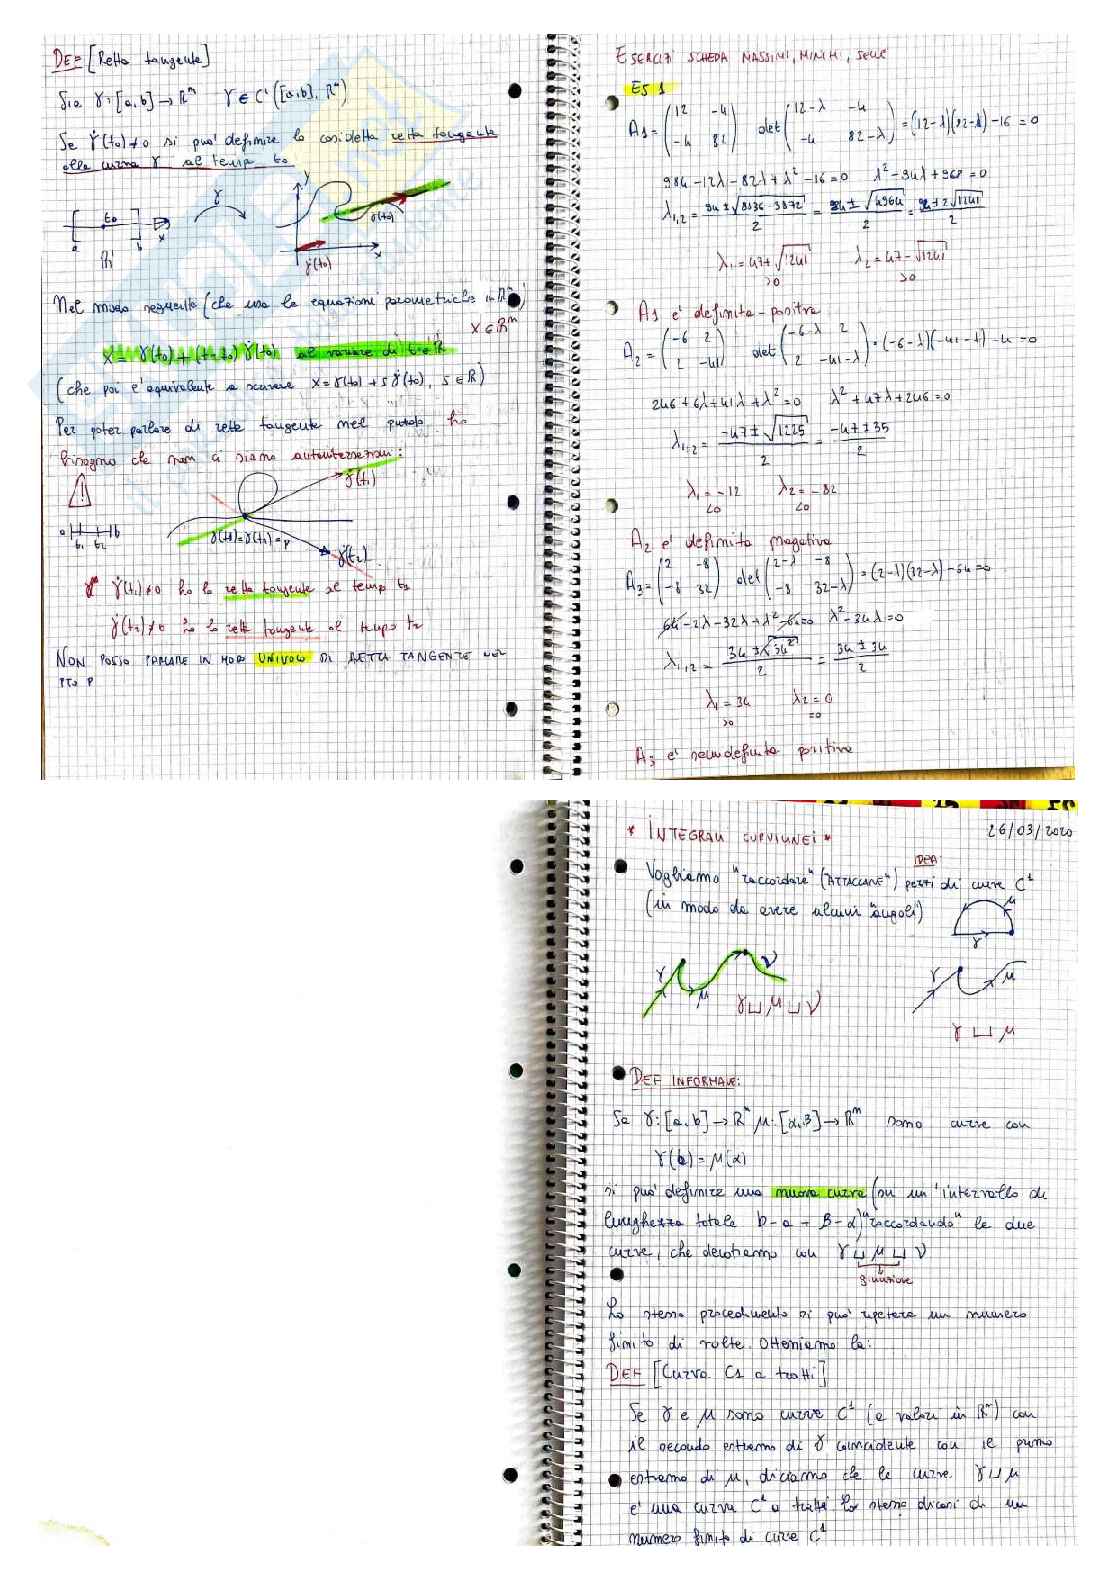 DEF [Retta tangente]
Sia γ: [a,b] → ℝⁿ γ ∈ C¹([a,b], ℝⁿ)
Se γ̇(t₀) ≠ 0 si può definire la cosidetta retta tangente
alla curva γ al tempo t₀
y
t₀ γ γ(t₀)
a b x x
ℝ γ̇(t₀)
Nel modo seguente (che usa le equazioni parametriche in ℝⁿ)
x ∈ ℝⁿ
x = γ(t₀) + (t-t₀) γ̇(t₀) al variare di t ∈ ℝ
(che poi è equivalente a scrivere x = γ(t₀) + s γ̇(t₀), s ∈ ℝ)
Per poter parlare di retta tangente nel punto ho
bisogno che non ci siano autointersezioni:
γ̇(t₁)
a b
t₁ t₂ γ(t₁)=γ(t₂)=P γ̇(t₂)
γ̇(t₁) ≠ 0 ho la retta tangente al tempo t₁
γ̇(t₂) ≠ 0 ho la retta tangente al tempo t₂
NON POSSO PARLARE IN MODO UNIVOCO DI RETTA TANGENTE NEL
PTO P
ESERCIZI SCHEDA MASSIMI, MINIMI, SELLE
ES 1
A₁ = (12 -4 / -4 82) det (12-λ -4 / -4 82-λ) = (12-λ)(82-λ) - 16 = 0
984 - 12λ - 82λ + λ² - 16 = 0 λ² - 94λ + 968 = 0
λ₁,₂ = 94 ± √8836 - 3872 / 2 = 94 ± √4964 / 2 = 94 ± 2√1241 / 2
λ₁ = 47 + √1241 λ₂ = 47 - √1241
>0 >0
A₁ è definita positiva
A₂ = (-6 2 / 2 -41) det (-6-λ 2 / 2 -41-λ) = (-6-λ)(-41-λ) - 4 = 0
246 + 6λ + 41λ + λ² = 0 λ² + 47λ + 246 = 0
λ₁,₂ = -47 ± √1225 / 2 = -47 ± 35 / 2
λ₁ = -12 λ₂ = -82
<0 <0
A₂ è definita negativa
A₃ = (2 -8 / -8 32) det (2-λ -8 / -8 32-λ) = (2-λ)(32-λ) - 64 = 0
64 - 2λ - 32λ + λ² - 64 = 0 λ² - 34λ = 0
λ₁,₂ = 34 ± √34² / 2 = 34 ± 34 / 2
λ₁ = 34 λ₂ = 0
>0 =0
A₃ è semidefinita positiva
* INTEGRALI CURVILINEI * 26/03/2020
IDEA:
Vogliamo "raccordare" (ATTACCARE") pezzi di curve C¹
(in modo da avere alcuni "angoli)
μ
γ
γ μ ν
γ ⊔ μ ⊔ ν
γ μ
γ ⊔ μ
DEF INFORMALE:
Se γ: [a,b] → ℝⁿ μ: [α,β] → ℝⁿ sono curve con
γ(b) = μ(α)
si può definire una nuova curva (su un'intervallo di
lunghezza totale b-a + β-α) "raccordando" le due
curve, che denotiamo con γ ⊔ μ ⊔ ν
giunzione
Lo stesso procedimento si può ripetere un numero
finito di volte. Otteniamo la:
DEF [Curva C1 a tratti]
Se γ e μ sono curve C¹ (a valori in ℝⁿ) con
il secondo estremo di γ coincidente con il primo
estremo di μ, diciamo che la curva γ ⊔ μ
è una curva C¹ a tratti. Lo stesso dicasi di un
numero finito di curve C¹